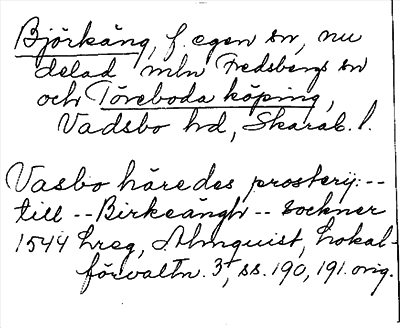 Björkäng, f. egen sn, nu
delad mln Fredsbergs sn
och Töreboda köping,
Vadsbo hd, Skarab. l.
Vasbo häredes prosterij: --
till -- Birkeängh -- Sockner
1544 hreg, Almquist, Lokal-
förvaltn. 3, ss. 190, 191. orig.